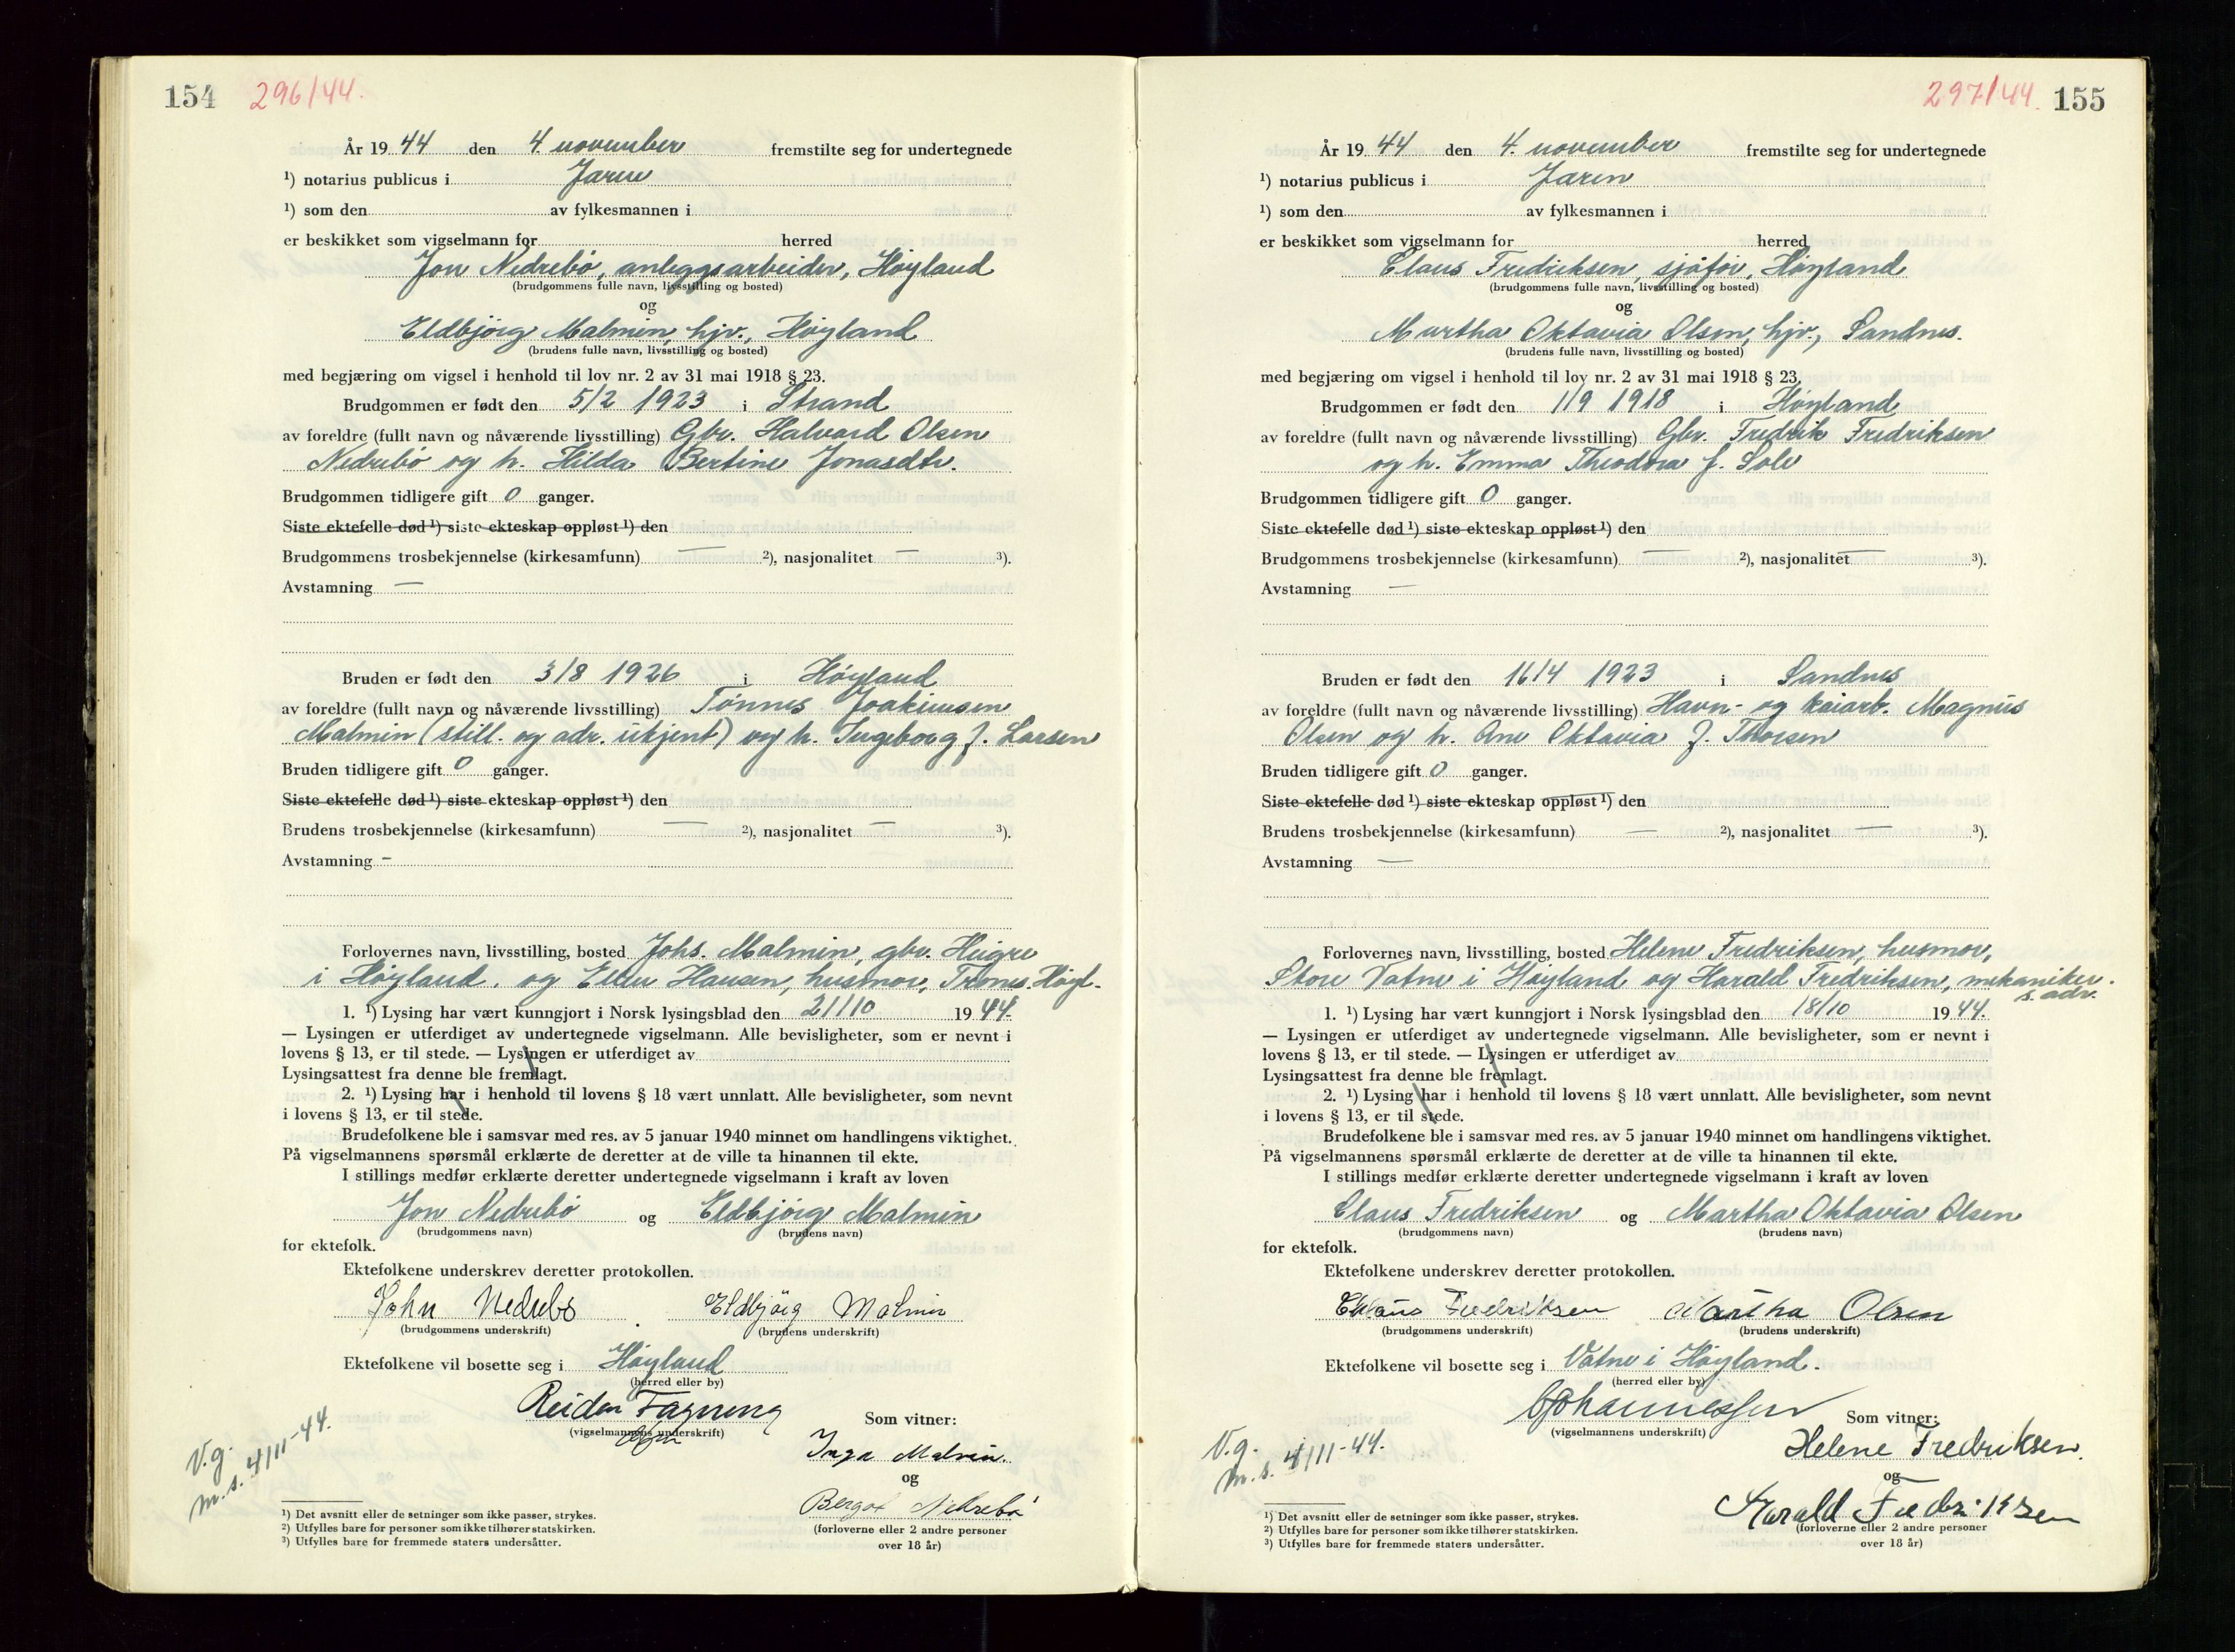 154 296/44.
År 1944 den 4. november fremstilte seg for undertegnede
¹) notarius publicus i Jæren
¹) som den av fylkesmannen i
er beskikket som vigselmann for herred
Jon Nedrebø, anleggsarbeider, Høyland
(brudgommens fulle navn, livsstilling og bosted)
og
Eldbjørg Malmin, hjv., Høyland
(brudens fulle navn, livsstilling og bosted)
med begjæring om vigsel i henhold til lov nr. 2 av 31 mai 1918 § 23.
Brudgommen er født den 5/2 1923 i Strand
av foreldre (fullt navn og nåværende livsstilling) Gbr. Halvard Olsen
Nedrebø og h. Hilda Bertine Jonasdtr.
Brudgommen tidligere gift 0 ganger.
Siste ektefelle død ¹) siste ekteskap oppløst ¹) den
Brudgommens trosbekjennelse (kirkesamfunn) — ²), nasjonalitet — ³).
Avstamning —
Bruden er født den 3/8 1926 i Høyland
av foreldre (fullt navn og nåværende livsstilling) Tønnes Joakimsen
Malmin (still. og adr. ukjent) og h. Ingeborg f. Larsen
Bruden tidligere gift 0 ganger.
Siste ektefelle død ¹) siste ekteskap oppløst ¹) den
Brudens trosbekjennelse (kirkesamfunn) — ²), nasjonalitet — ³).
Avstamning –
Forlovernes navn, livsstilling, bosted Johs. Malmin, gbr. Heigre
i Høyland. og Ellen Hansen, husmor, Trones. Høyl.
1. ¹) Lysing har vært kunngjort i Norsk lysingsblad den 21/10 1944.
— Lysingen er utferdiget av undertegnede vigselmann. Alle bevisligheter, som er nevnt i
lovens § 13, er til stede. — Lysingen er utferdiget av
Lysingsattest fra denne ble fremlagt.
2. ¹) Lysing har i henhold til lovens § 18 vært unnlatt. Alle bevisligheter, som nevnt
i lovens § 13, er til stede.
Brudefolkene ble i samsvar med res. av 5 januar 1940 minnet om handlingens viktighet.
På vigselmannens spørsmål erklærte de deretter at de ville ta hinannen til ekte.
I stillings medfør erklærte deretter undertegnede vigselmann i kraft av loven
Jon Nedrebø og Eldbjørg Malmin
(brudgommens navn) (brudens navn)
for ektefolk.
Ektefolkene underskrev deretter protokollen.
John Nedrebø Eldbjørg Malmin
(brudgommens underskrift) (brudens underskrift)
Ektefolkene vil bosette seg i Høyland
(herred eller by)
Reidar Fagnung
(vigselmannens underskrift)
Som vitner:
Inga Malmin.
og
Bergot Nedrebø
(forloverne eller 2 andre personer
over 18 år)
V.g.
m.s. 4/11-44.
¹) Det avsnitt eller de setninger som ikke passer, strykes.
²) Utfylles bare for personer som ikke tilhører statskirken.
³) Utfylles bare for fremmede staters undersåtter.
297/44. 155
År 1944 den 4. november fremstilte seg for undertegnede
¹) notarius publicus i Jæren
¹) som den av fylkesmannen i
er beskikket som vigselmann for herred
Claus Fredriksen, sjåfør, Høyland
(brudgommens fulle navn, livsstilling og bosted)
og
Martha Oktavia Olsen, hjv., Sandnes.
(brudens fulle navn, livsstilling og bosted)
med begjæring om vigsel i henhold til lov nr. 2 av 31 mai 1918 § 23.
Brudgommen er født den 1/9 1918 i Høyland
av foreldre (fullt navn og nåværende livsstilling) Gbr. Fredrik Fredriksen
og h. Emma Theodora f. Sole
Brudgommen tidligere gift 0 ganger.
Siste ektefelle død ¹) siste ekteskap oppløst ¹) den
Brudgommens trosbekjennelse (kirkesamfunn) — ²), nasjonalitet — ³).
Avstamning —
Bruden er født den 16/4 1923 i Sandnes
av foreldre (fullt navn og nåværende livsstilling) Havn- og kaiarb. Magnus
Olsen og h. Ane Oktavia f. Thorsen
Bruden tidligere gift 0 ganger.
Siste ektefelle død ¹) siste ekteskap oppløst ¹) den
Brudens trosbekjennelse (kirkesamfunn) — ²), nasjonalitet — ³).
Avstamning —
Forlovernes navn, livsstilling, bosted Helene Fredriksen, husmor,
Store Vatne i Høyland og Harald Fredriksen, mekaniker.
s. adr.
1. ¹) Lysing har vært kunngjort i Norsk lysingsblad den 18/10 1944.
— Lysingen er utferdiget av undertegnede vigselmann. Alle bevisligheter, som er nevnt i
lovens § 13, er til stede. — Lysingen er utferdiget av
Lysingsattest fra denne ble fremlagt.
2. ¹) Lysing har i henhold til lovens § 18 vært unnlatt. Alle bevisligheter, som nevnt
i lovens § 13, er til stede.
Brudefolkene ble i samsvar med res. av 5 januar 1940 minnet om handlingens viktighet.
På vigselmannens spørsmål erklærte de deretter at de ville ta hinannen til ekte.
I stillings medfør erklærte deretter undertegnede vigselmann i kraft av loven
Claus Fredriksen og Martha Oktavia Olsen
(brudgommens navn) (brudens navn)
for ektefolk.
Ektefolkene underskrev deretter protokollen.
Claus Fredriksen Martha Olsen
(brudgommens underskrift) (brudens underskrift)
Ektefolkene vil bosette seg i Vatne i Høyland.
(herred eller by)
Johannessen
(vigselmannens underskrift)
Som vitner:
Helene Fredriksen.
og
Harald Fredriksen
(forloverne eller 2 andre personer
over 18 år)
V.g.
m.s. 4/11-44.
¹) Det avsnitt eller de setninger som ikke passer, strykes.
²) Utfylles bare for personer som ikke tilhører statskirken.
³) Utfylles bare for fremmede staters undersåtter.